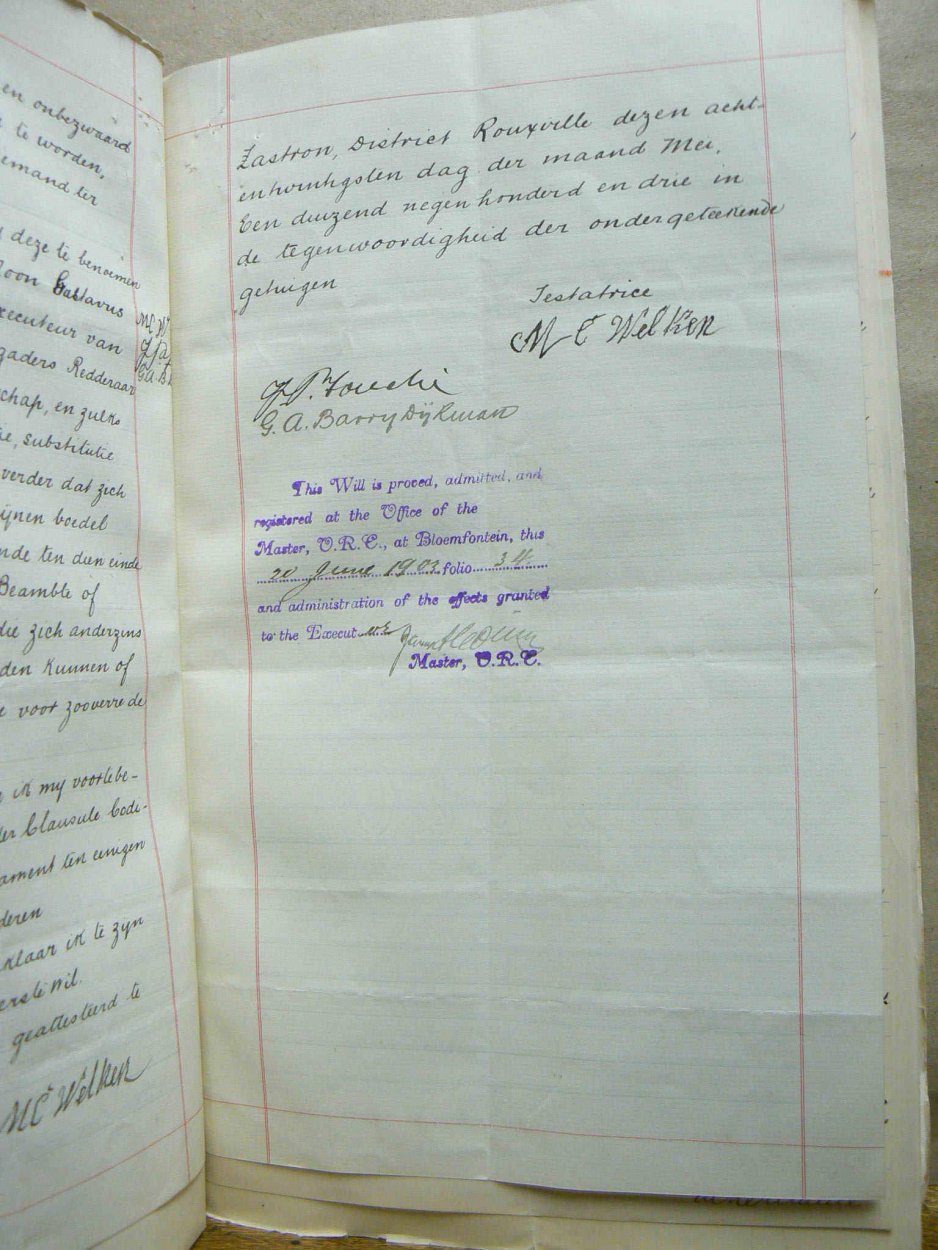 en onbezwaard
te worden,
iemand ter
deze te benoemen
Zoon Gustavus
xecuteur van
gaders Redderaar
schap, en zulks
ie, substitutie
verder dat zich
ijnen boedel
nde ten dien einde
Beambte of
die zich anderzins
den kunnen of
e voor zooverre de
ik my voorbe-
der Clausule Codi-
ament ten eenigen
deren
klaar ik te zijn
erste Wil.
geattesteerd te
M C Welken
M C W
G.A.B.
Zastron, District Rouxville dezen acht-
entwintigsten dag der maand Mei,
Een duizend negenhonderd en drie in
de tegenwoordigheid der ondergeteekende
getuigen
Testatrice
M C Welken
J P Fouché
G. A. Barry Dijkman
This Will is proved, admitted, and
registered at the Office of the
Master, O.R.C., at Bloemfontein, this
20 June 1903 folio 34
and administration of the effects granted
to the Execut
Master, O.R.C.